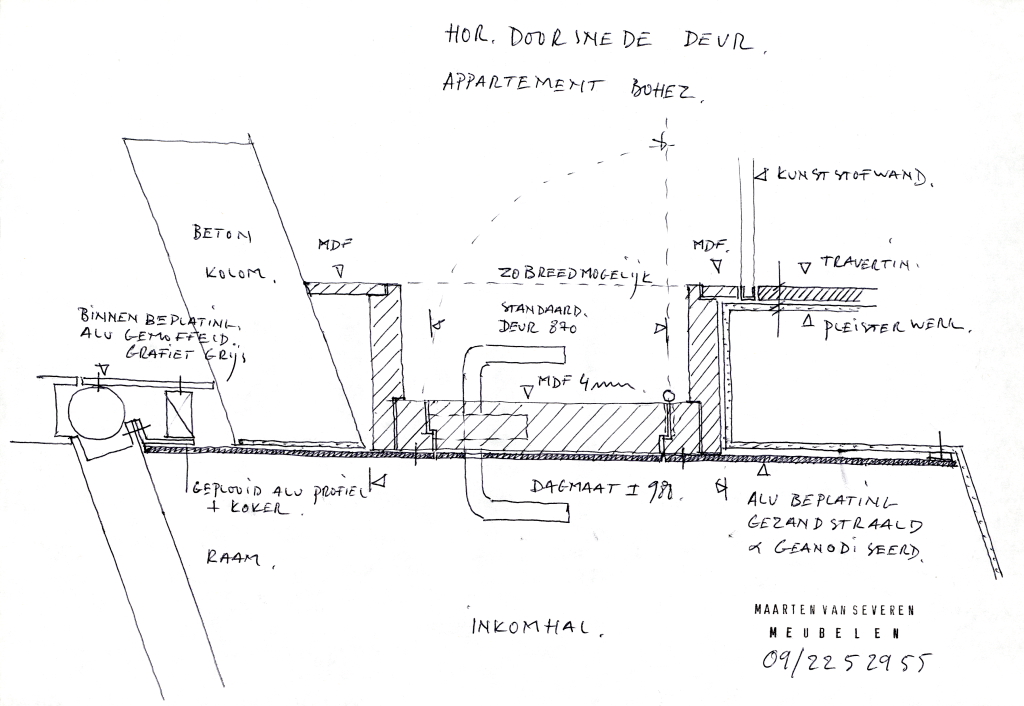 HOR. DOORSNEDE DEUR.
APPARTEMENT BOHEZ.
KUNSTSTOFWAND.
BETON
KOLOM.
MDF
MDF.
TRAVERTIN.
ZO BREED MOGELIJK
STANDAARD.
DEUR 870
BINNENBEPLATING.
ALU GEMOFFELD.
GRAFIET GRIJS
PLEISTERWERK.
MDF 4mm.
GEPLOOID ALU PROFIEL
+ KOKER.
DAGMAAT ± 980.
ALU BEPLATING
GEZANDSTRAALD
& GEANODISEERD.
RAAM.
INKOMHAL.
MAARTEN VAN SEVEREN
MEUBELEN
09/2252955